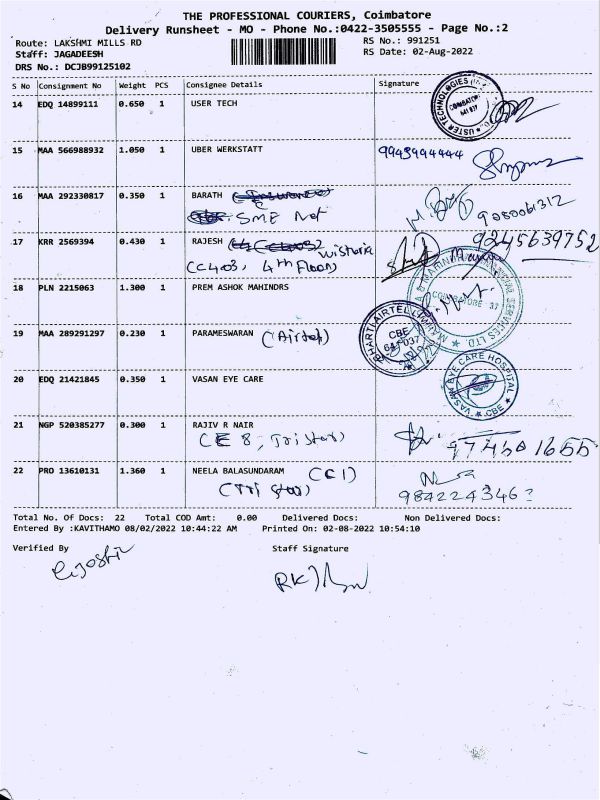 THE PROFESSIONAL COURIERS, Coimbatore
Delivery Runsheet - MO - Phone No.:0422-3505555 - Page No.:2
Route: LAKSHMI MILLS RD
RS No.: 991251
Staff: JAGADEESH
RS Date: 02-Aug-2022
DRS No.: DCJB99125102
S No Consignment No Weight PCS Consignee Details Signature
14 EDQ 14899111 0.650 1 USER TECH
USTER TECHNOLOGIES
15 MAA 566988932 1.050 1 UBER WERKSTATT
9943994444
16 MAA 292330817 0.350 1 BARATH
SME Net
9080061312
17 KRR 2569394 0.430 1 RAJESH Wistaria
9245639752
(C403, 4th Floor)
18 PLN 2215063 1.300 1 PREM ASHOK MAHINDRS
COIMBATORE 37
SERVICES LTD.
19 MAA 289291297 0.230 1 PARAMESWARAN (Airtel)
BHARTI AIRTEL LIMITED
CBE
20 EDQ 21421845 0.350 1 VASAN EYE CARE
VASAN EYE CARE HOSPITAL
CBE
21 NGP 520385277 0.300 1 RAJIV R NAIR
(CE 8, Tristar)
22 PRO 13610131 1.360 1 NEELA BALASUNDARAM (CC1)
(Tri Star)
Total No. Of Docs: 22 Total COD Amt: 0.00 Delivered Docs: Non Delivered Docs:
Entered By :KAVITHAMO 08/02/2022 10:44:22 AM Printed On: 02-08-2022 10:54:10
Verified By Staff Signature